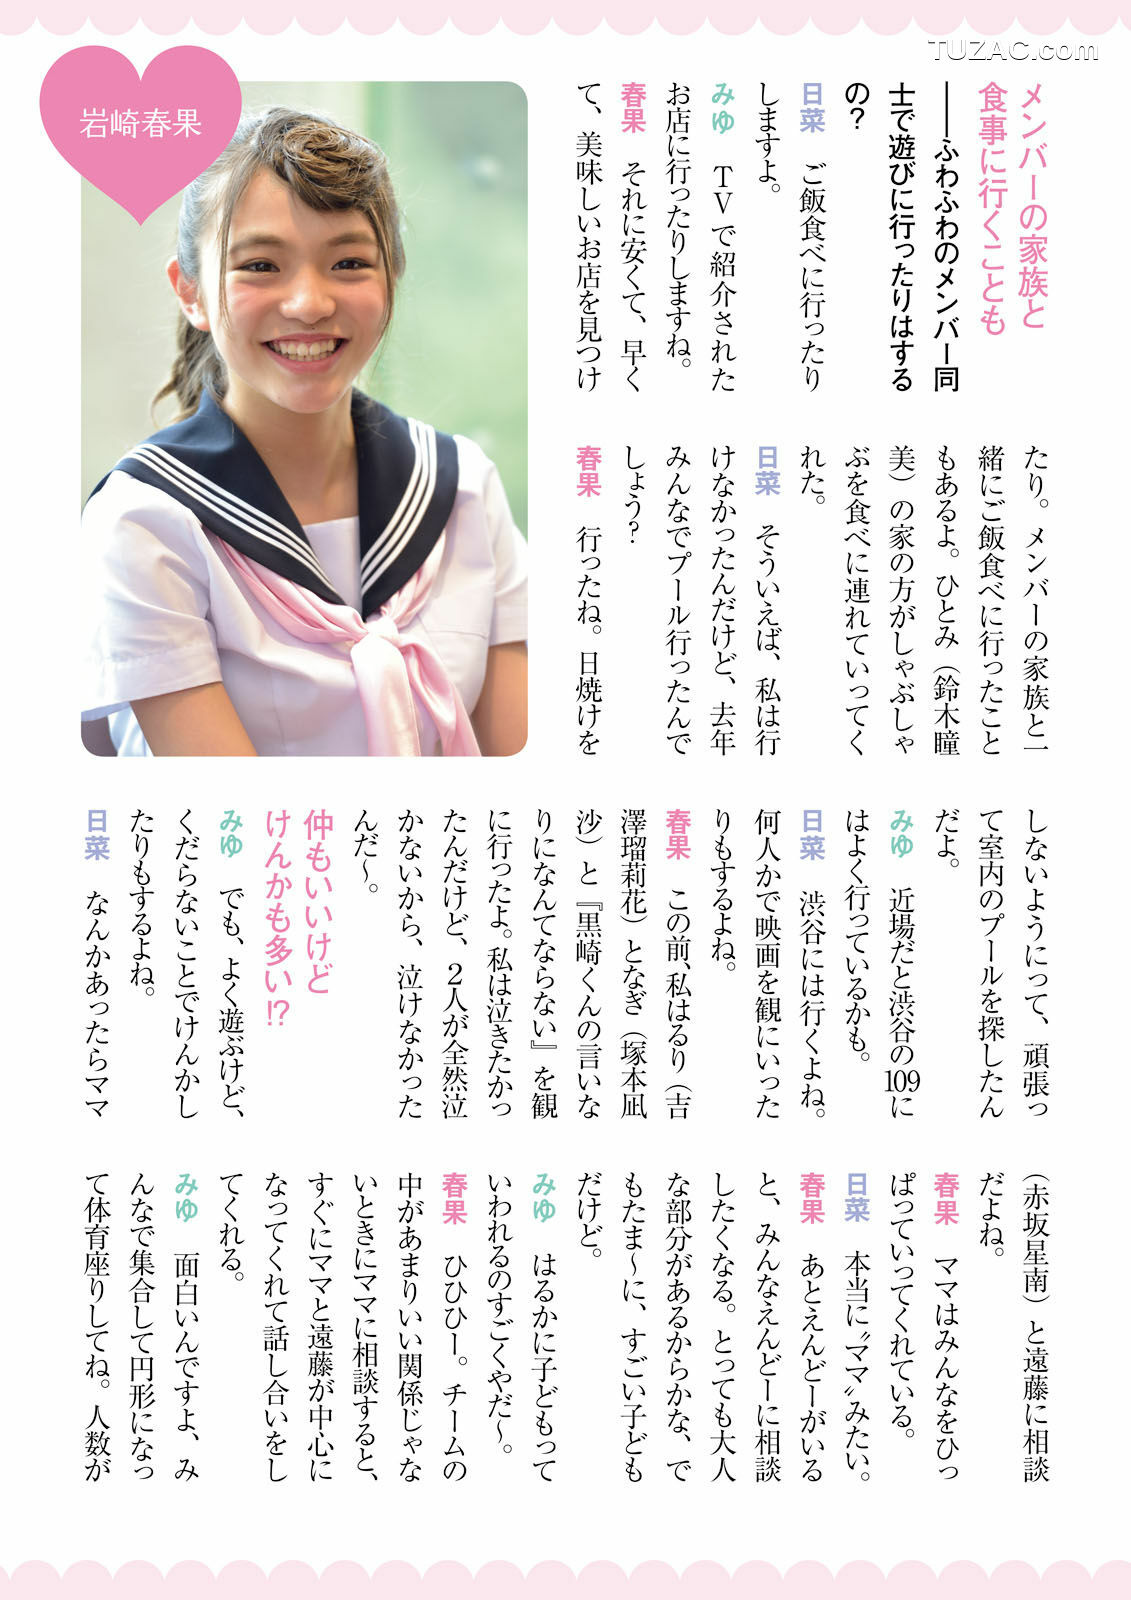 TUZAC.com
岩崎春果
メンバーの家族と
食事に行くことも
――ふわふわのメンバー同
士で遊びに行ったりはする
の?
日菜　ご飯食べに行ったり
しますよ。
みゆ　TVで紹介された
お店に行ったりしますね。
春果　それに安くて、早く
て、美味しいお店を見つけ
たり。メンバーの家族と一
緒にご飯食べに行ったこと
もあるよ。ひとみ（鈴木瞳
美）の家の方がしゃぶしゃ
ぶを食べに連れていってく
れた。
日菜　そういえば、私は行
けなかったんだけど、去年
みんなでプール行ったんで
しょう?
春果　行ったね。日焼けを
しないようにって、頑張っ
て室内のプールを探したん
だよ。
みゆ　近場だと渋谷の109に
はよく行っているかも。
日菜　渋谷には行くよね。
何人かで映画を観にいった
りもするよね。
春果　この前、私はるり（吉
澤瑠莉花）となぎ（塚本凪
沙）と『黒崎くんの言いな
りになんてならない』を観
に行ったよ。私は泣きたかっ
たんだけど、2人が全然泣
かないから、泣けなかった
んだ〜。
仲もいいけど
けんかも多い!?
みゆ　でも、よく遊ぶけど、
くだらないことでけんかし
たりもするよね。
日菜　なんかあったらママ
（赤坂星南）と遠藤に相談
だよね。
春果　ママはみんなをひっ
ぱっていってくれている。
日菜　本当に〝ママ〟みたい。
春果　あとえんどーがいる
と、みんなえんどーに相談
したくなる。とっても大人
な部分があるからかな、で
もたま〜に、すごい子ども
だけど。
みゆ　はるかに子どもって
いわれるのすごくやだ〜。
春果　ひひひー。チームの
中があまりいい関係じゃな
いときにママに相談すると、
すぐにママと遠藤が中心に
なってくれて話し合いをし
てくれる。
みゆ　面白いんですよ、み
んなで集合して円形になっ
て体育座りしてね。人数が